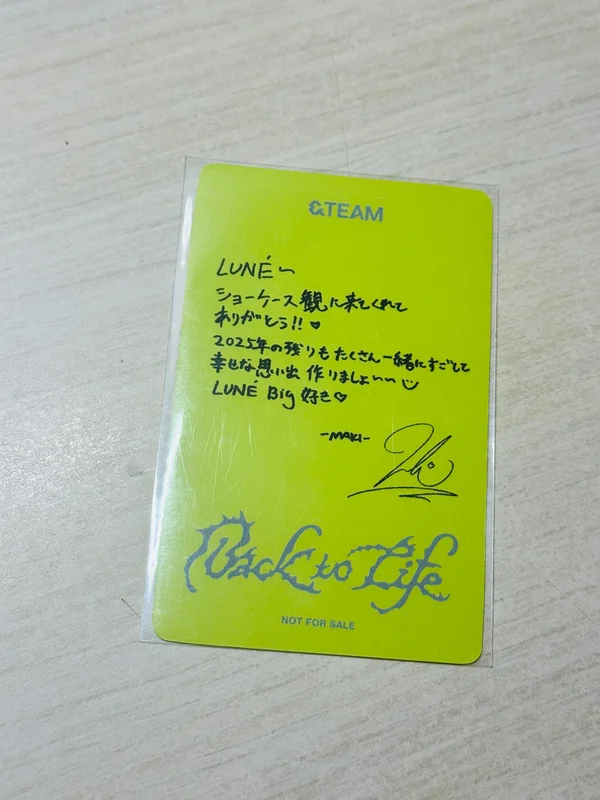 &TEAM
LUNÉ〜
ショーケース観に来てくれて
ありがとう!! ♡
2025年の残りもたくさん一緒にすごして
幸せな思い出 作りましょ〜〜
LUNÉ Big 好き♡
-MAKI-
Back to Life
NOT FOR SALE